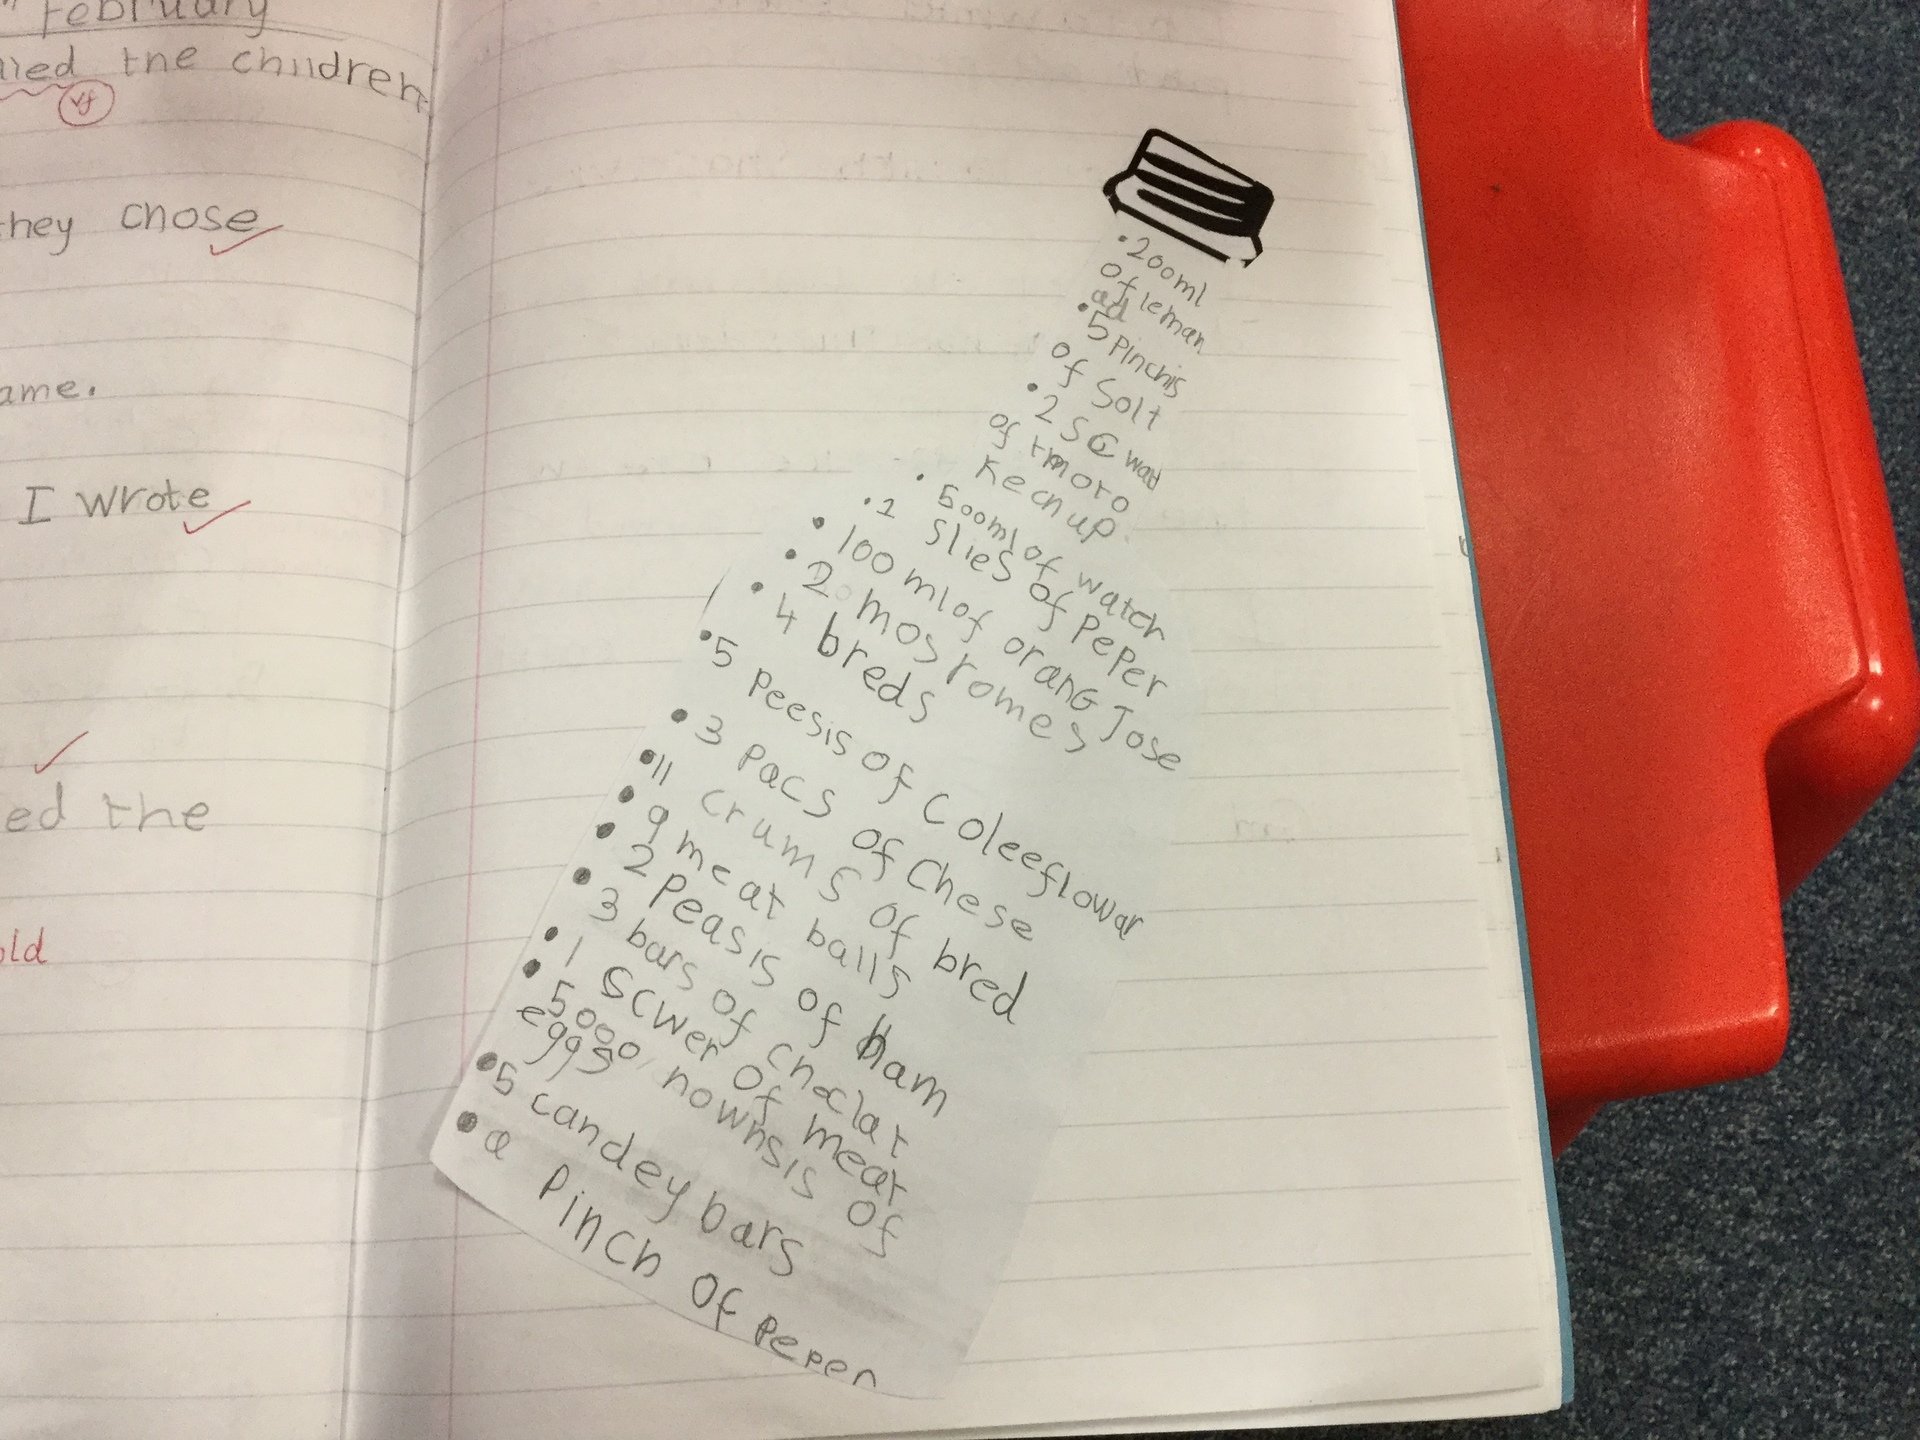 February
the children
they chose
ame.
I wrote
ed the
old
• 200ml
of leman
ad
• 5 pinchis
of Solt
• 2 SC wod
of tmoto
Kechup
• 500ml of water
• 1 Slies of PePer
• 100 ml of orang Jose
• 2 mosromes
• 4 breds
• 5 peesis of Coleeflowar
• 3 pacs of Chese
• 11 crums of bred
• 9 meat balls
• 2 peasis of ham
• 3 bars of choclat
• 1 scwer of meat
• 5000 nownsis of
eggs
• 5 candey bars
• a pinch of peper